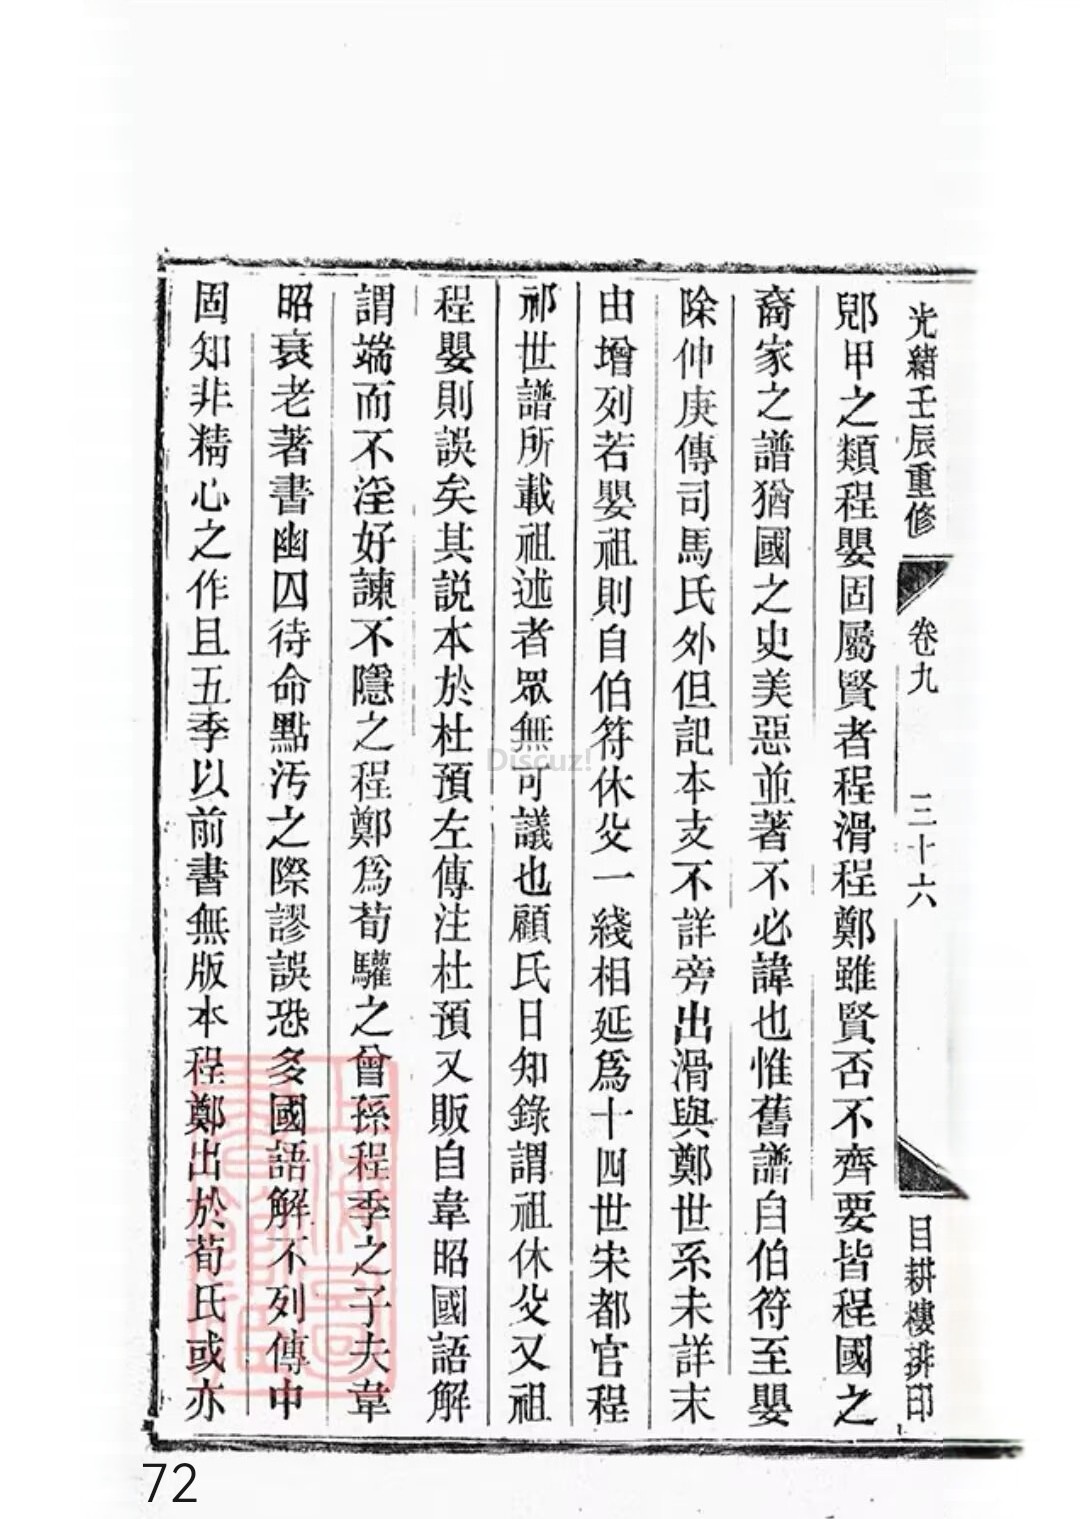 光緒壬辰重修 卷九 三十六 目耕樓排印
郳甲之類程嬰固屬賢者程滑程鄭雖賢否不齊要皆程國之
裔家之譜猶國之史美惡並著不必諱也惟舊譜自伯符至嬰
除仲庚傳司馬氏外但記本支不詳旁出滑與鄭世系未詳末
由增列若嬰祖則自伯符休父一綫相延爲十四世宋都官程
祁世譜所載祖述者眾無可議也顧氏日知錄謂祖休父又祖
程嬰則誤矣其説本於杜預左傳注杜預又販自韋昭國語解
謂端而不淫好諫不隱之程鄭爲荀驩之曾孫程季之子夫韋
昭衰老著書幽囚待命點汚之際謬誤恐多國語解不列傳中
固知非精心之作且五季以前書無版本程鄭出於荀氏或亦
Discuz!
72